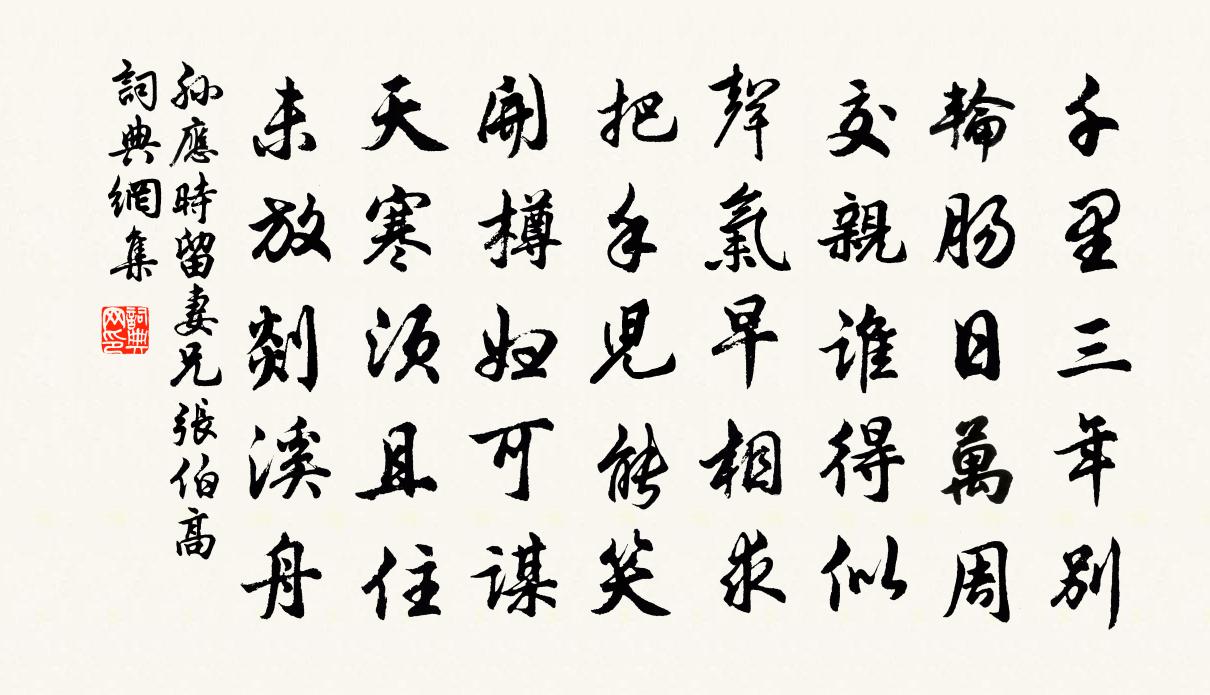 千里三年別
輪腸日萬周
交親誰得似
聲氣早相求
把手兒能笑
開樽婦可謀
天寒須且住
未放剡溪舟
孫應時留妻兄張伯高
詞典網集
詞典網印